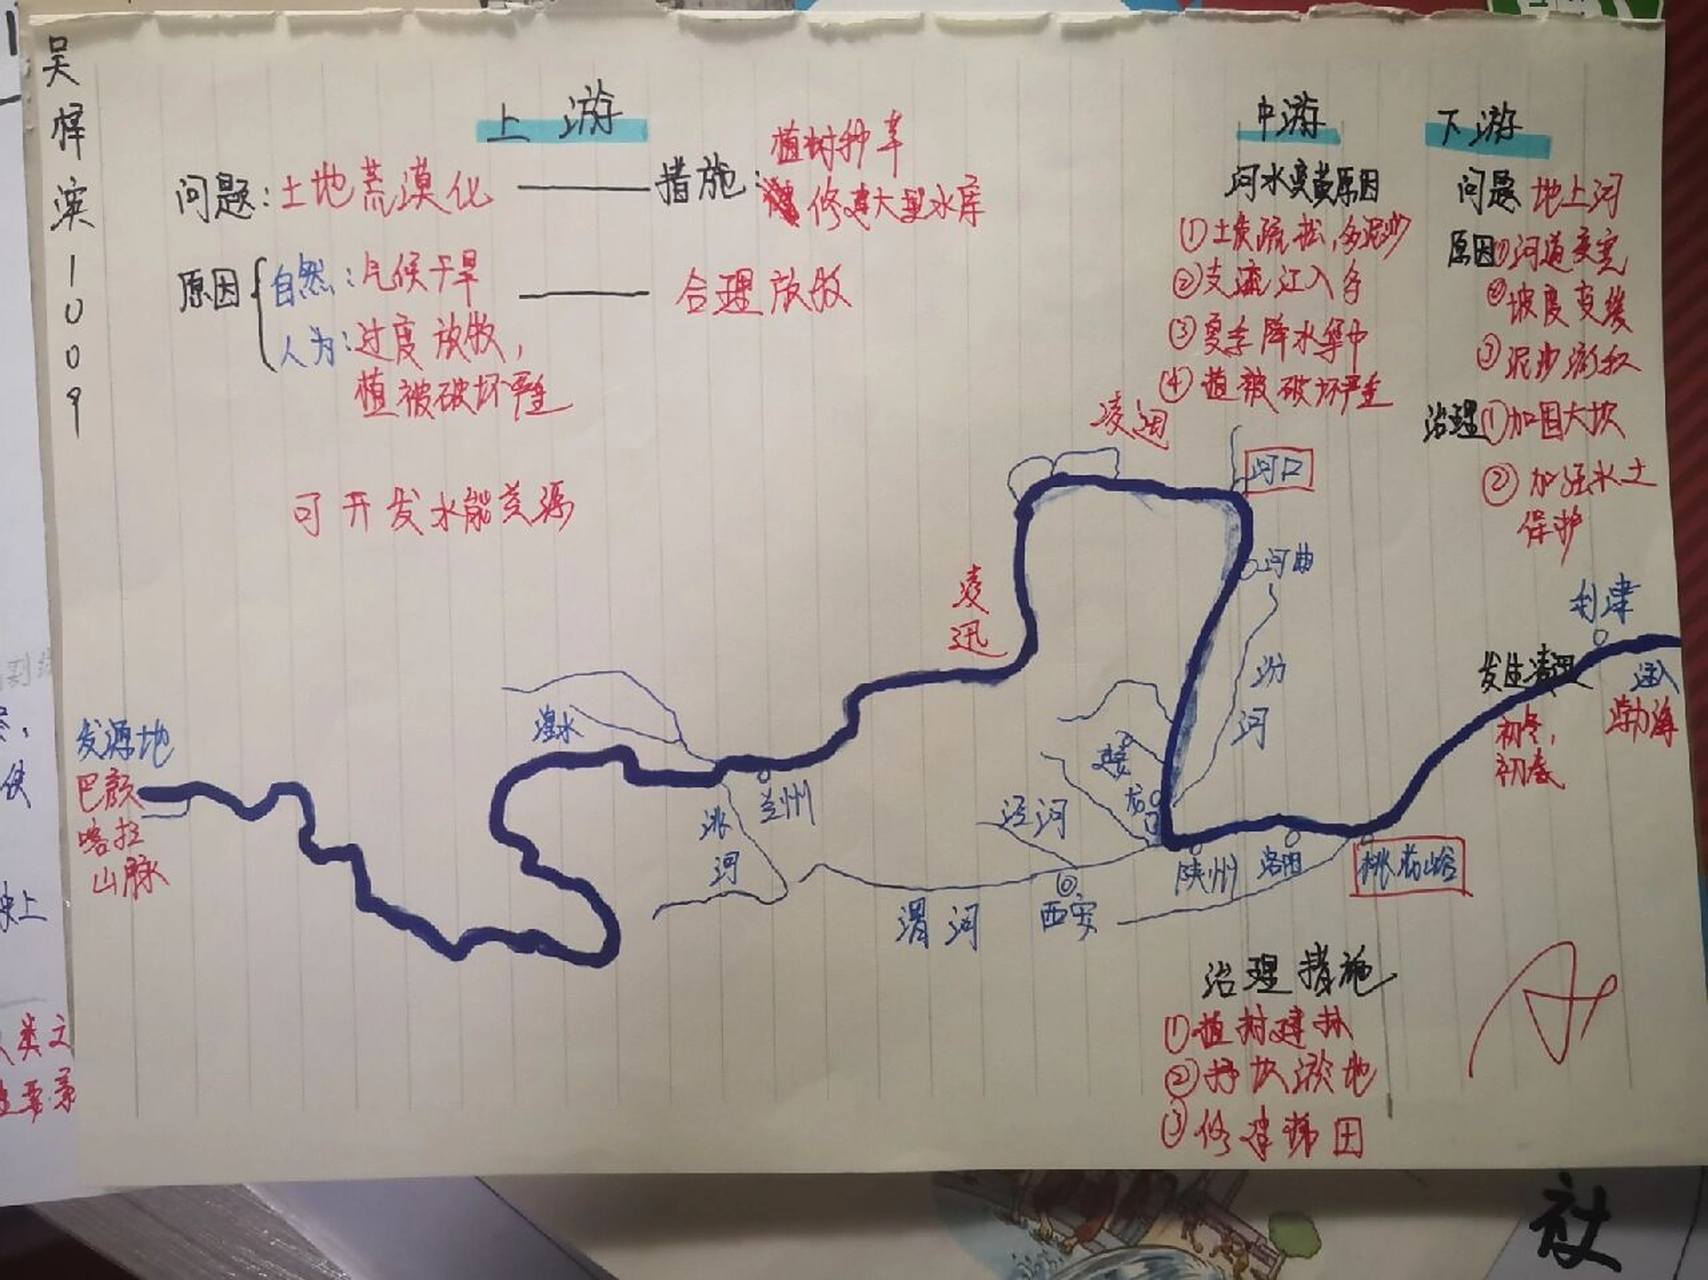 吴怿滨1009
上游
问题：土地荒漠化
措施：植树种草
修建大型水库
原因
自然：气候干旱
人为：过度放牧，
植被破坏严重
合理放牧
可开发水能资源
中游
河水变黄原因
①土质疏松，多泥沙
②支流汇入多
③夏季降水集中
④植被破坏严重
下游
问题 地上河
原因①河道变宽
②坡度变缓
③泥沙淤积
治理①加固大坝
②加强水土
保护
凌汛
河口
河曲
凌汛
汾河
利津
发生凌汛
初冬，
初春
注入
渤海
发源地
巴颜
喀拉
山脉
湟水
兰州
洮河
泾河
延安
龙门
渭河
西安
陕州
洛阳
桃花峪
治理措施
①植树建林
②打坝淤地
③修建梯田
社